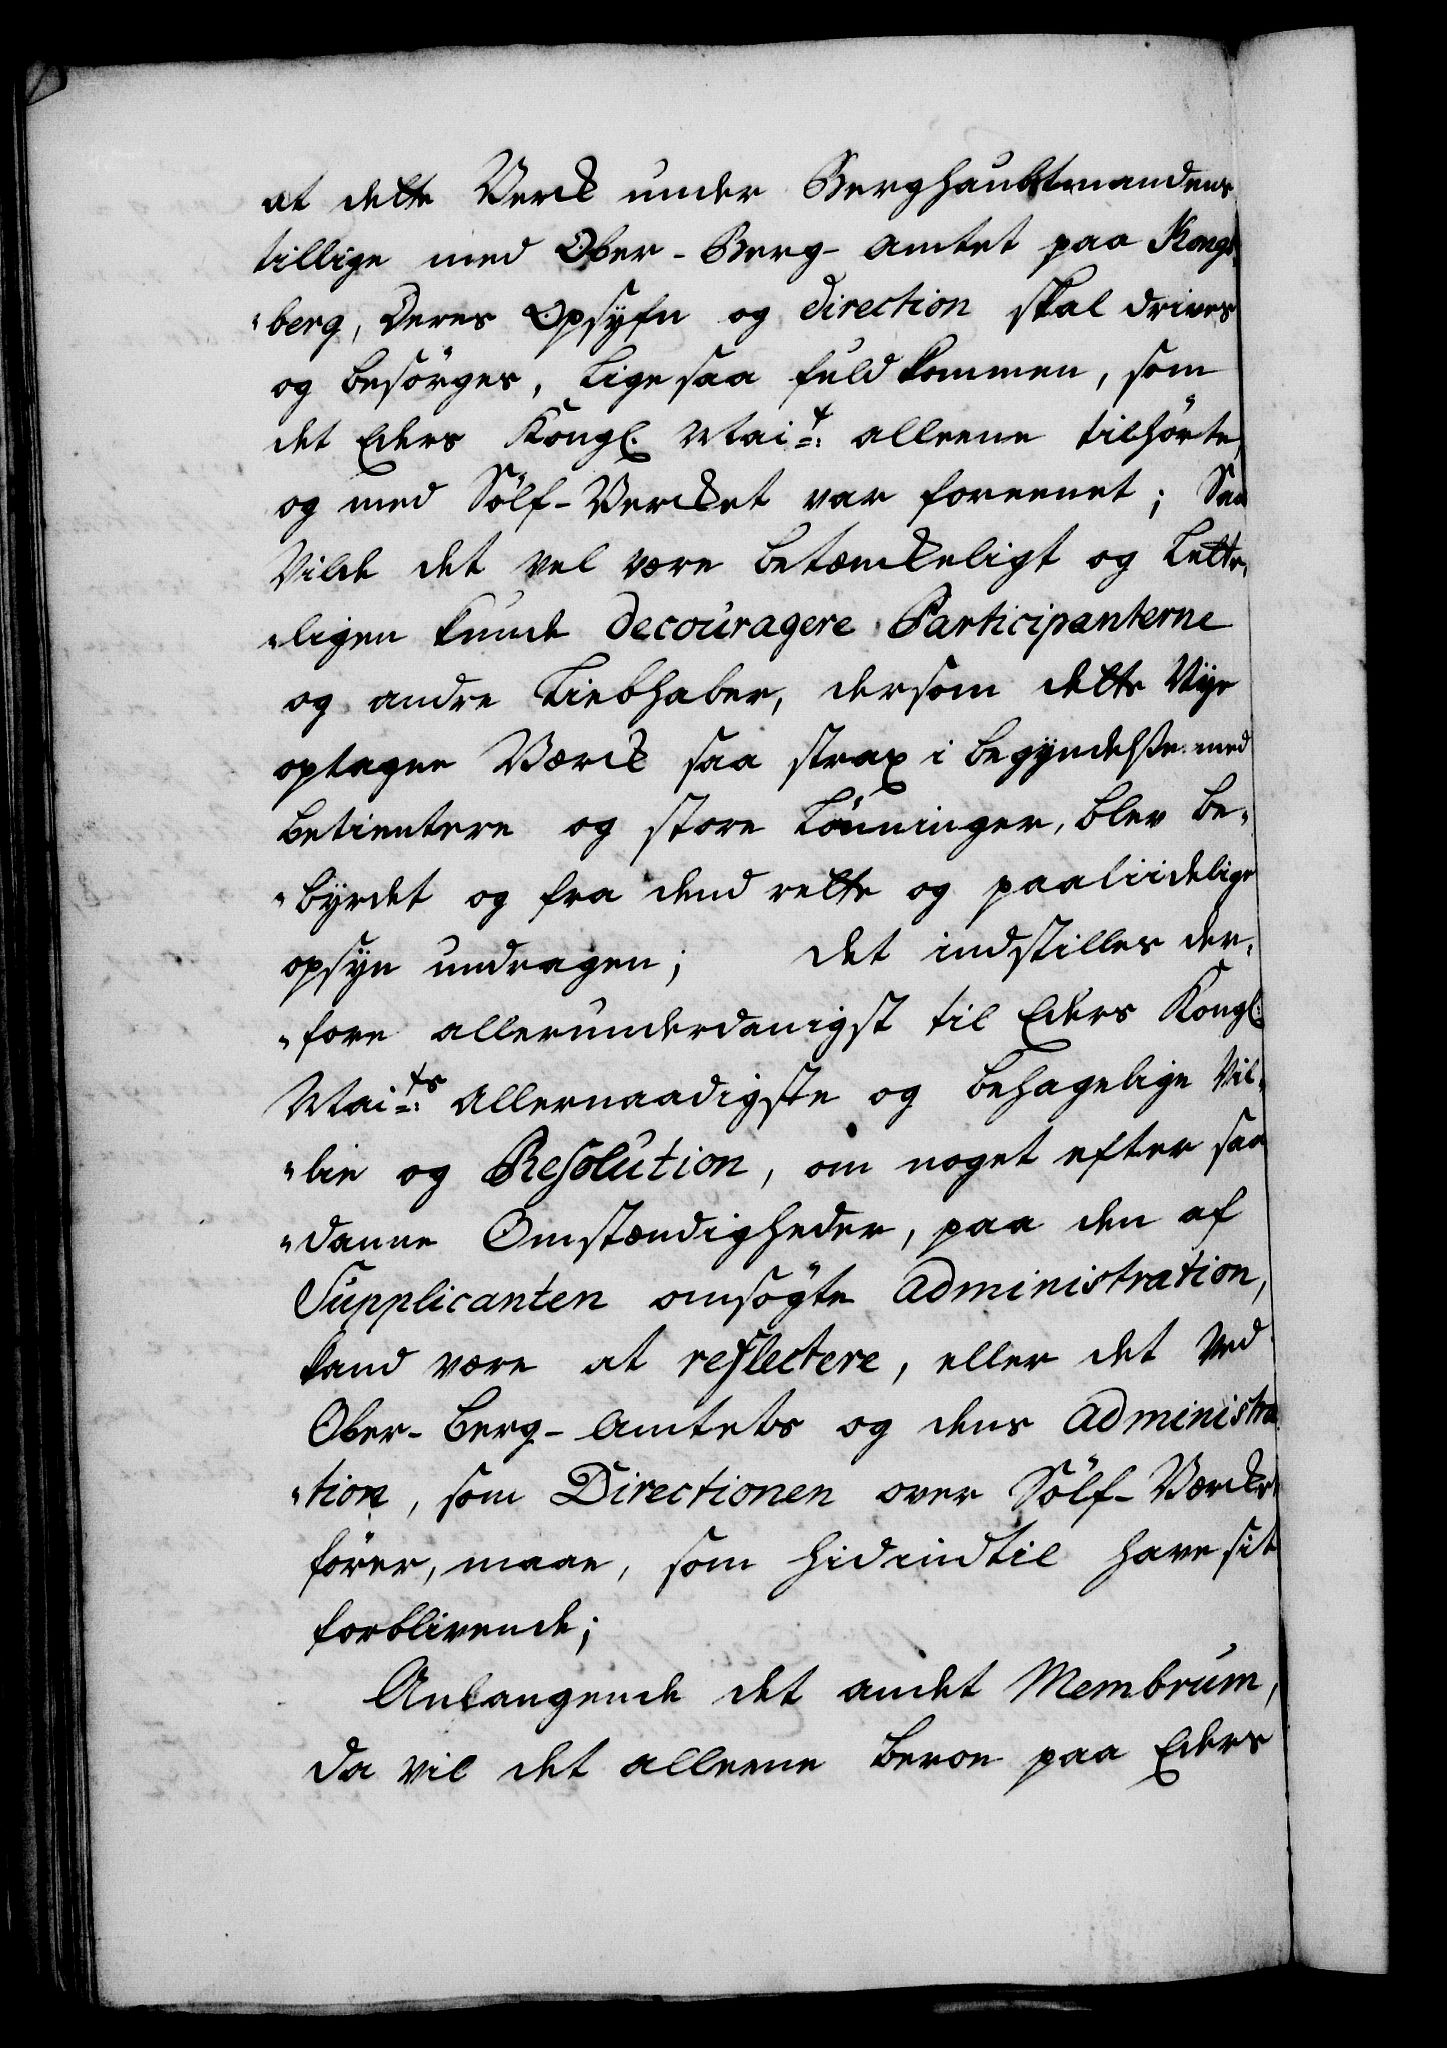 at dette Verck under Berghaubtmandens
tillige med Ober-Berg-Amtet paa Kongs-
"berg, Deres Opsyfn og Direction skal drives
og besörges, lige saa fuldkommen, som
det Eders Kongl. Mait: alleene tilhörte,
og med Sölf-Vercket var foreenet; Saa
Vilde det vel være betænckeligt og Lette,
"ligen kunde Decouragere Participanterne
og andre Liebhaber, dersom dette Nye
optagne Værck saa strax i begyndelsen med
betientere og store Lönninger, blev be-
"byrdet og fra dend rette og paaliidelige
opsyn undragen; det indstilles der,
"fore allerunderdanigst til Eders Kongl:
Maits: Allernaadigste og behagelige Vil,
"lie og Resolution, om noget efter saa
"danne Omstændigheder, paa den af
Supplicanten omsögte Administration,
kand være at reflectere, eller det Ved
Ober-Berg-Amtets og dens Administra
"tion, som Directionen over Sölf-Værcket
förer, maae, som hidindtil have sit
forblivende;
Anlangende det andet Membrum,
da vil det alleene beroe paa Eders